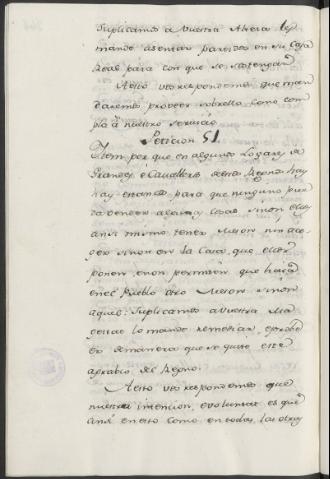 Suplicamos a Vuestra Alteza les
mande asentar partidos en su Casa
Real para con que se sostengan
A esto vos respondemos que man
daremos proveer sobrello como con
pla a nuestro servicio
Peticion 51.
Item por que en algunos Logares de
Grandes e Cavalleros deste Regno hay
hay estancos para que ninguno pue
da vender algunas cosas sinon ellos
ansi mismo tener Meson nin aco
ger sinon en la Casa que ellos
ponen, e non permiten que haya
en el Pueblo otro Meson sinon
aquel: Suplicamos a Vuestra Ma
gestad lo mande remediar, e proveer
de manera que se quite este
agravio del Regno:
A esto vos respondemos que
nuestra intencion, e voluntad es que
ansi en esto como en todas las otras